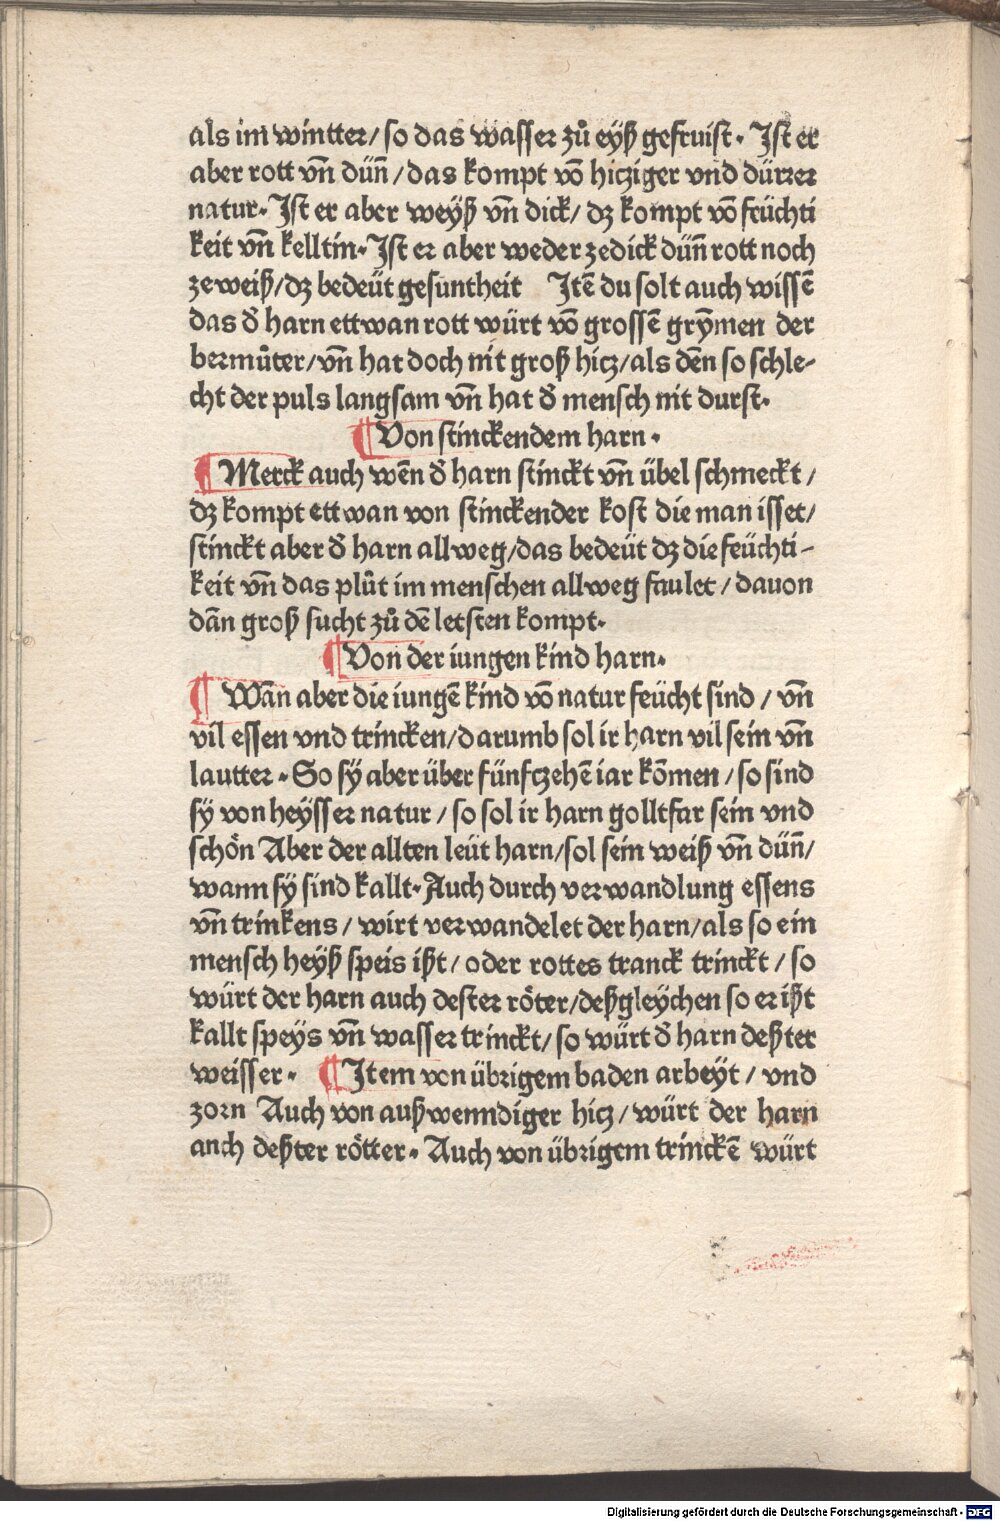 als im wintter/ so das wasser zů eyß gefruist. Ist er
aber rott vñ düñ/ das kompt võ hicziger vnd dürrer
natur. Ist er aber weyß vñ dick/ dz kompt võ feüchti
keit vñ kelltin. Ist er aber weder zedick düñ rott noch
zeweiß/ dz bedeüt gesuntheit Itẽ du solt auch wissẽ
das d̕ harn ettwan rott würt võ grossẽ grỹmen der
bermůter/ vñ hat doch nit groß hicz/ als dẽn so schle-
cht der puls langsam vñ hat d̕ mensch nit durst.
¶ Von stinckendem harn.
¶ Merck auch wẽn d̕ harn stinckt vñ übel schmeckt/
dz kompt ettwan von stinckender kost die man isset/
stinckt aber d̕ harn allweg/ das bedeüt dz die feüchti-
keit vñ das plůt im menschen allweg faulet/ dauon
dãn groß sucht zů dẽ letsten kompt.
¶ Von der iungen kind harn.
¶ Wãn aber die iungẽ kind võ natur feücht sind/ vñ
vil essen vnd trincken/ darumb sol ir harn vil sein vñ
lautter. So sy aber über fünfczehẽ iar kõmen/ so sind
sy von heysser natur/ so sol ir harn golltfar sein vnd
schön Aber der allten leüt harn/ sol sein weiß vñ düñ/
wann sy sind kallt. Auch durch verwandlung essens
vñ trinkens/ wirt verwandelet der harn/ als so ein
mensch heyß speis ißt/ oder rottes tranck trinckt/ so
würt der harn auch dester röter/ deßgleychen so er ißt
kallt speys vñ wasser trinckt/ so würt d̕ harn deßter
weisser. ¶ Item von übrigem baden arbeyt/ vnd
zorn Auch von außwenndiger hicz/ würt der harn
anch deßter rötter. Auch von übrigem trinckẽ würt
Digitalisierung gefördert durch die Deutsche Forschungsgemeinschaft - DFG